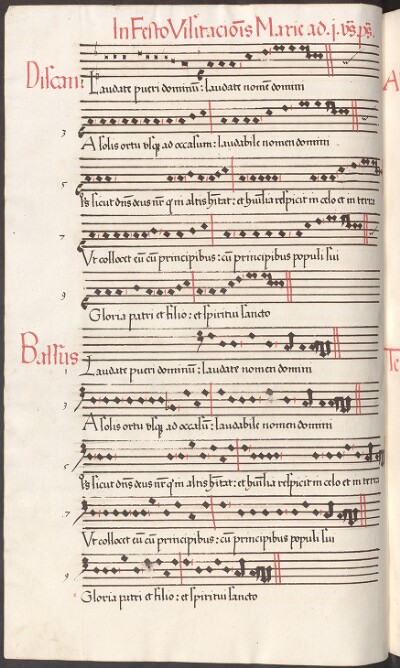 In Festo Visitaciōis Marie ad .j. vs̄. ps̄.
Discant
Laudate pueri dominū: laudate nomē domini
3
A solis ortu vsq̨ ad occasum: laudabile nomen domini
5
sicut dn̄s deus nr̄ q̄ in altis hītat: et huīlia respicit in celo et in terra
7
Vt collocet eū cū principibus: cū principibus populi sui
9
Gloria patri et filio: et spiritui sancto
Bassus
1
Laudate pueri dominū: laudate nomen domini
3
A solis ortu vsq̨ ad occasū: laudabile nomen domini
5
sicut dn̄s deus nr̄ q̄ in altis hītat: et huīlia respicit in celo et in terra
7
Vt collocet eū cū principibus: cū principibus populi sui
9
Gloria patri et filio: et spiritui sancto